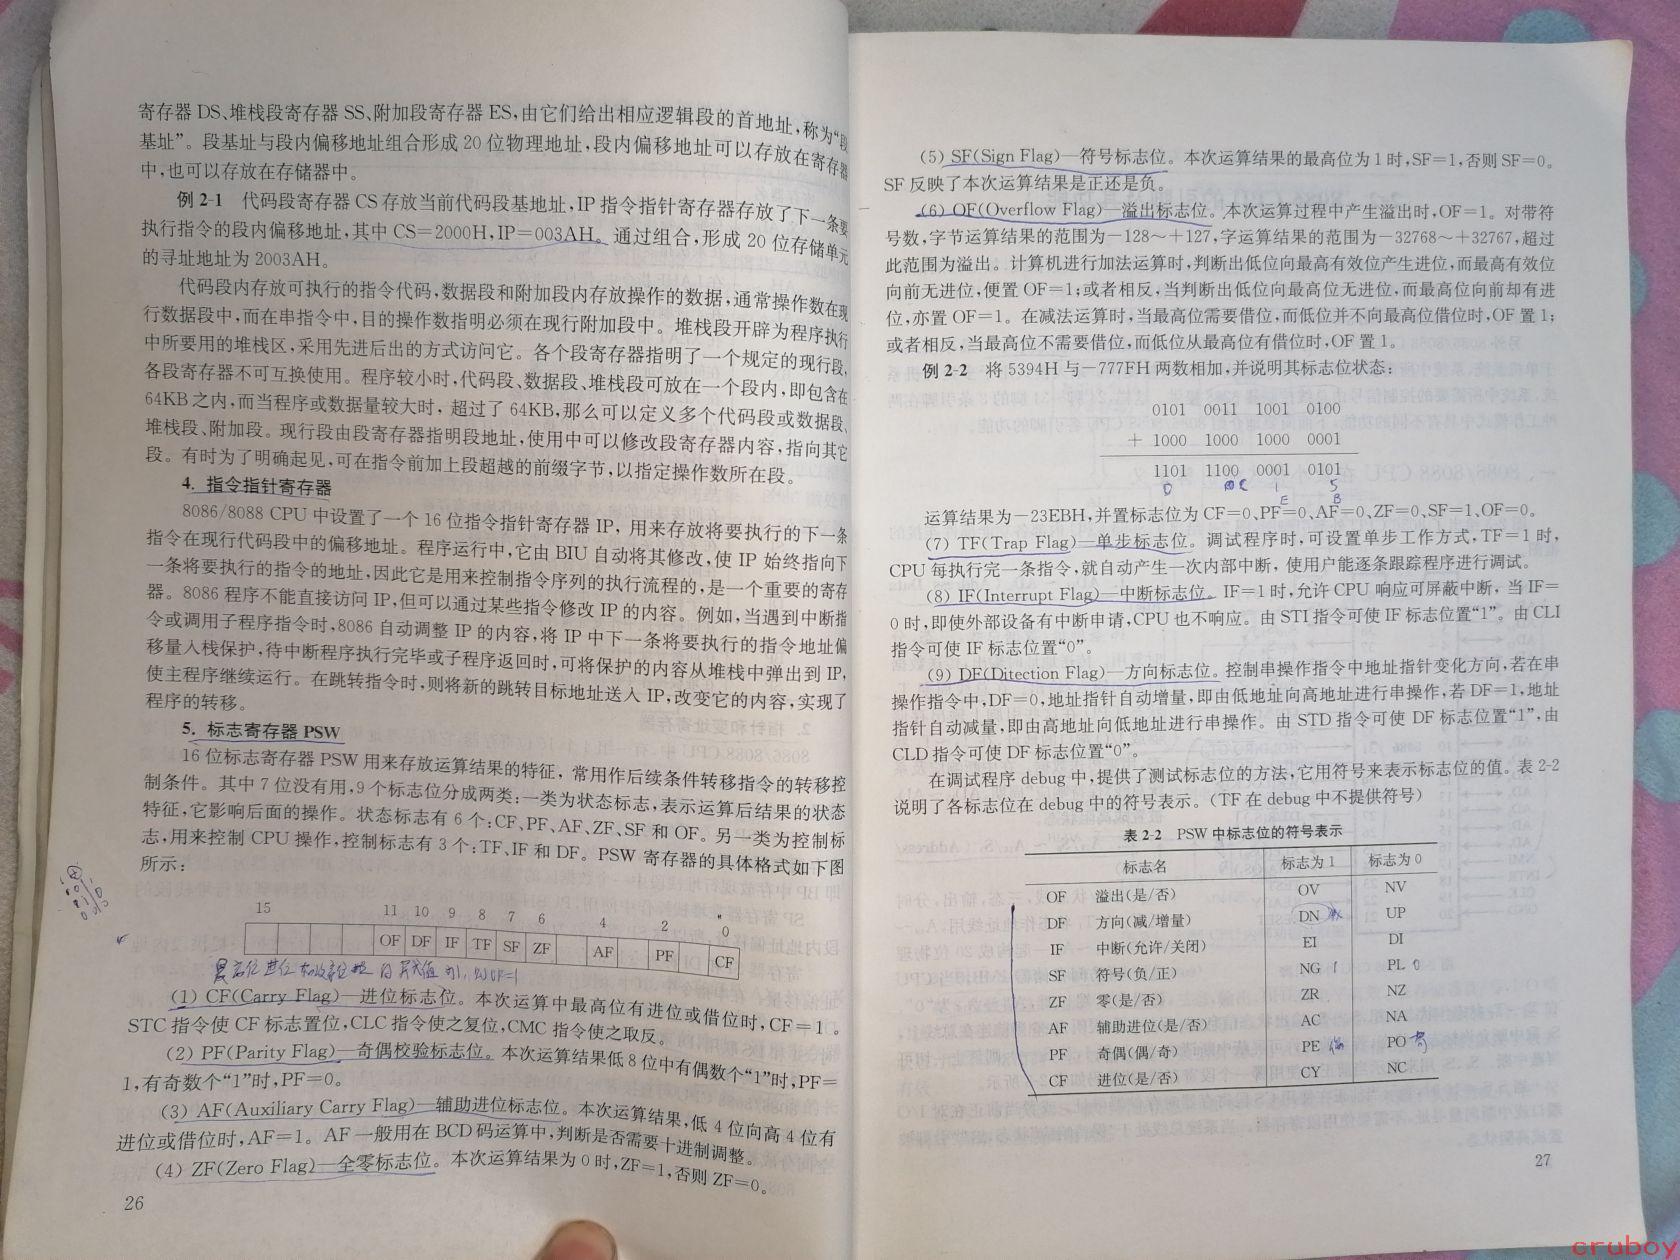 寄存器 DS、堆栈段寄存器 SS、附加段寄存器 ES,由它们给出相应逻辑段的首地址,称为“段
基址”。段基址与段内偏移地址组合形成 20 位物理地址,段内偏移地址可以存放在寄存器
中,也可以存放在存储器中。
例 2-1 代码段寄存器 CS 存放当前代码段基地址,IP 指令指针寄存器存放了下一条要
执行指令的段内偏移地址,其中 CS=2000H,IP=003AH。通过组合,形成 20 位存储单元
的寻址地址为 2003AH。
代码段内存放可执行的指令代码,数据段和附加段内存放操作的数据,通常操作数在现
行数据段中,而在串指令中,目的操作数指明必须在现行附加段中。堆栈段开辟为程序执行
中所要用的堆栈区,采用先进后出的方式访问它。各个段寄存器指明了一个规定的现行段,
各段寄存器不可互换使用。程序较小时,代码段、数据段、堆栈段可放在一个段内,即包含在
64KB 之内,而当程序或数据量较大时,超过了 64KB,那么可以定义多个代码段或数据段、
堆栈段、附加段。现行段由段寄存器指明段地址,使用中可以修改段寄存器内容,指向其它
段。有时为了明确起见,可在指令前加上段超越的前缀字节,以指定操作数所在段。
4. 指令指针寄存器
8086/8088 CPU 中设置了一个 16 位指令指针寄存器 IP,用来存放将要执行的下一条
指令在现行代码段中的偏移地址。程序运行中,它由 BIU 自动将其修改,使 IP 始终指向下
一条将要执行的指令的地址,因此它是用来控制指令序列的执行流程的,是一个重要的寄存
器。8086 程序不能直接访问 IP,但可以通过某些指令修改 IP 的内容。例如,当遇到中断指
令或调用子程序指令时,8086 自动调整 IP 的内容,将 IP 中下一条将要执行的指令地址偏
移量入栈保护,待中断程序执行完毕或子程序返回时,可将保护的内容从堆栈中弹出到 IP,
使主程序继续运行。在跳转指令时,则将新的跳转目标地址送入 IP,改变它的内容,实现了
程序的转移。
5. 标志寄存器 PSW
16 位标志寄存器 PSW 用来存放运算结果的特征,常用作后续条件转移指令的转移控
制条件。其中 7 位没有用,9 个标志位分成两类:一类为状态标志,表示运算后结果的状态
特征,它影响后面的操作。状态标志有 6 个:CF、PF、AF、ZF、SF 和 OF。另一类为控制标
志,用来控制 CPU 操作,控制标志有 3 个:TF、IF 和 DF。PSW 寄存器的具体格式如下图
所示:
15 11 10 9 8 7 6 4 2 0
OF DF IF TF SF ZF AF PF CF
(1) CF(Carry Flag)—进位标志位。本次运算中最高位有进位或借位时,CF=1。
STC 指令使 CF 标志置位,CLC 指令使之复位,CMC 指令使之取反。
(2) PF(Parity Flag)—奇偶校验标志位。本次运算结果低 8 位中有偶数个“1”时,PF=
1,有奇数个“1”时,PF=0。
(3) AF(Auxiliary Carry Flag)—辅助进位标志位。本次运算结果,低 4 位向高 4 位有
进位或借位时,AF=1。AF 一般用在 BCD 码运算中,判断是否需要十进制调整。
(4) ZF(Zero Flag)—全零标志位。本次运算结果为 0 时,ZF=1,否则 ZF=0。
26
(5) SF(Sign Flag)—符号标志位。本次运算结果的最高位为 1 时,SF=1,否则 SF=0。
SF 反映了本次运算结果是正还是负。
(6) OF(Overflow Flag)—溢出标志位。本次运算过程中产生溢出时,OF=1。对带符
号数,字节运算结果的范围为-128~+127,字运算结果的范围为-32768~+32767,超过
此范围为溢出。计算机进行加法运算时,判断出低位向最高有效位产生进位,而最高有效位
向前无进位,便置 OF=1;或者相反,当判断出低位向最高位无进位,而最高位向前却有进
位,亦置 OF=1。在减法运算时,当最高位需要借位,而低位并不向最高位借位时,OF 置 1;
或者相反,当最高位不需要借位,而低位从最高位有借位时,OF 置 1。
例 2-2 将 5394H 与-777FH 两数相加,并说明其标志位状态:
0101 0011 1001 0100
+ 1000 1000 1000 0001
1101 1100 0001 0101
D C 1 5
E B
运算结果为-23EBH,并置标志位为 CF=0、PF=0、AF=0、ZF=0、SF=1、OF=0。
(7) TF(Trap Flag)—单步标志位。调试程序时,可设置单步工作方式,TF=1 时,
CPU 每执行完一条指令,就自动产生一次内部中断,使用户能逐条跟踪程序进行调试。
(8) IF(Interrupt Flag)—中断标志位。IF=1 时,允许 CPU 响应可屏蔽中断,当 IF=
0 时,即使外部设备有中断申请,CPU 也不响应。由 STI 指令可使 IF 标志位置“1”。由 CLI
指令可使 IF 标志位置“0”。
(9) DF(Ditection Flag)—方向标志位。控制串操作指令中地址指针变化方向,若在串
操作指令中,DF=0,地址指针自动增量,即由低地址向高地址进行串操作,若 DF=1,地址
指针自动减量,即由高地址向低地址进行串操作。由 STD 指令可使 DF 标志位置“1”,由
CLD 指令可使 DF 标志位置“0”。
在调试程序 debug 中,提供了测试标志位的方法,它用符号来表示标志位的值。表 2-2
说明了各标志位在 debug 中的符号表示。(TF 在 debug 中不提供符号)
表 2-2 PSW 中标志位的符号表示
标志名 标志为 1 标志为 0
OF 溢出(是/否) OV NV
DF 方向(减/增量) DN UP
IF 中断(允许/关闭) EI DI
SF 符号(负/正) NG 1 PL 0
ZF 零(是/否) ZR NZ
AF 辅助进位(是/否) AC NA
PF 奇偶(偶/奇) PE 偶 PO 奇
CF 进位(是/否) CY NC
27
cruboy